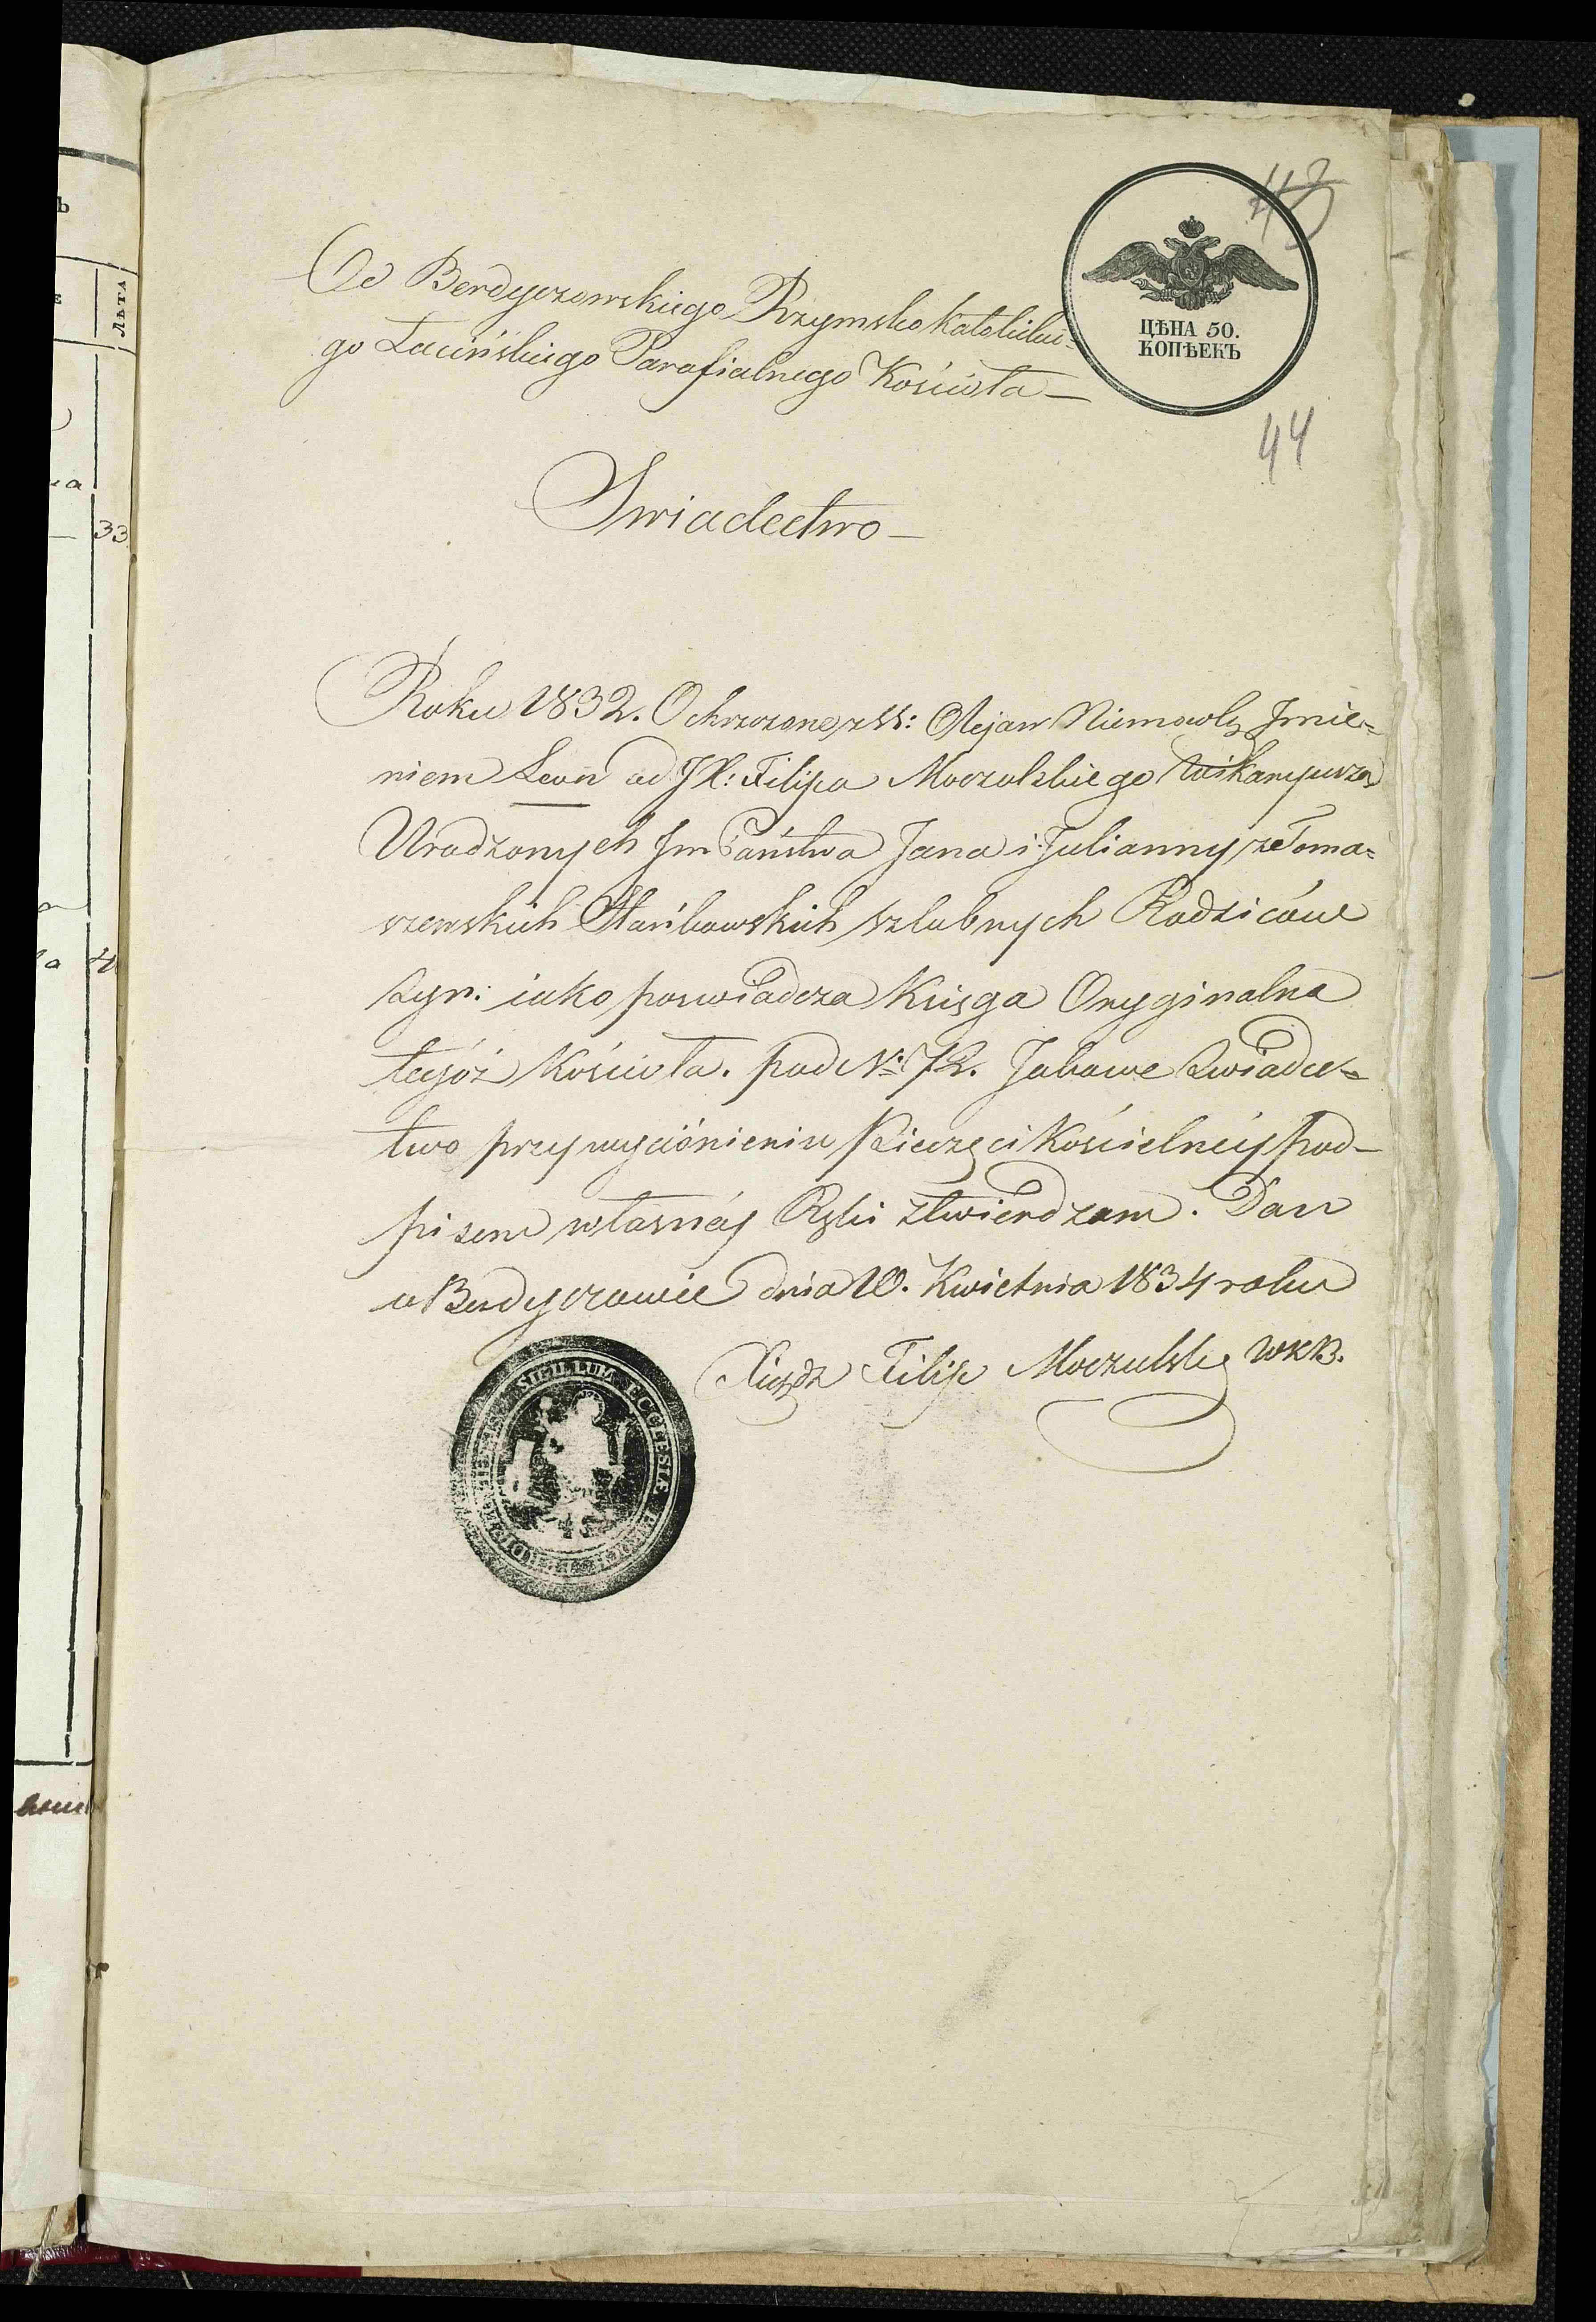 43
ЦѢНА 50.
КОПѢЕКЪ
44
Od Berdyczowskiego Rzymsko Katolickie-
go Łacińskiego Parafialnego Kościoła
Swiadectwo
Roku 1832. Ochrzczone z SS: Olejami Niemowlę Jmie=
niem Leon od JX: Filipa Moczulskiego Wikaryusza
Urodzonych Jm Państwa Jana i Julianny z Toma=
szewskich szlubnych Rodziców
Syn: iako poswiadcza Księga Oryginalna
tegóż Kościoła. pod N: 72. Jakowe Swiadec=
two przy wyciśnieniu Pieczęci Kościelnéy pod-
pisem własnéy Ręki ztwierdzam. Dan
w Berdyczowie dnia 10. Kwietnia 1834 roku
Xiądz Filip Moczulski WKB.
SIGILLUM ECCLESIÆ
33
ЛѢТА